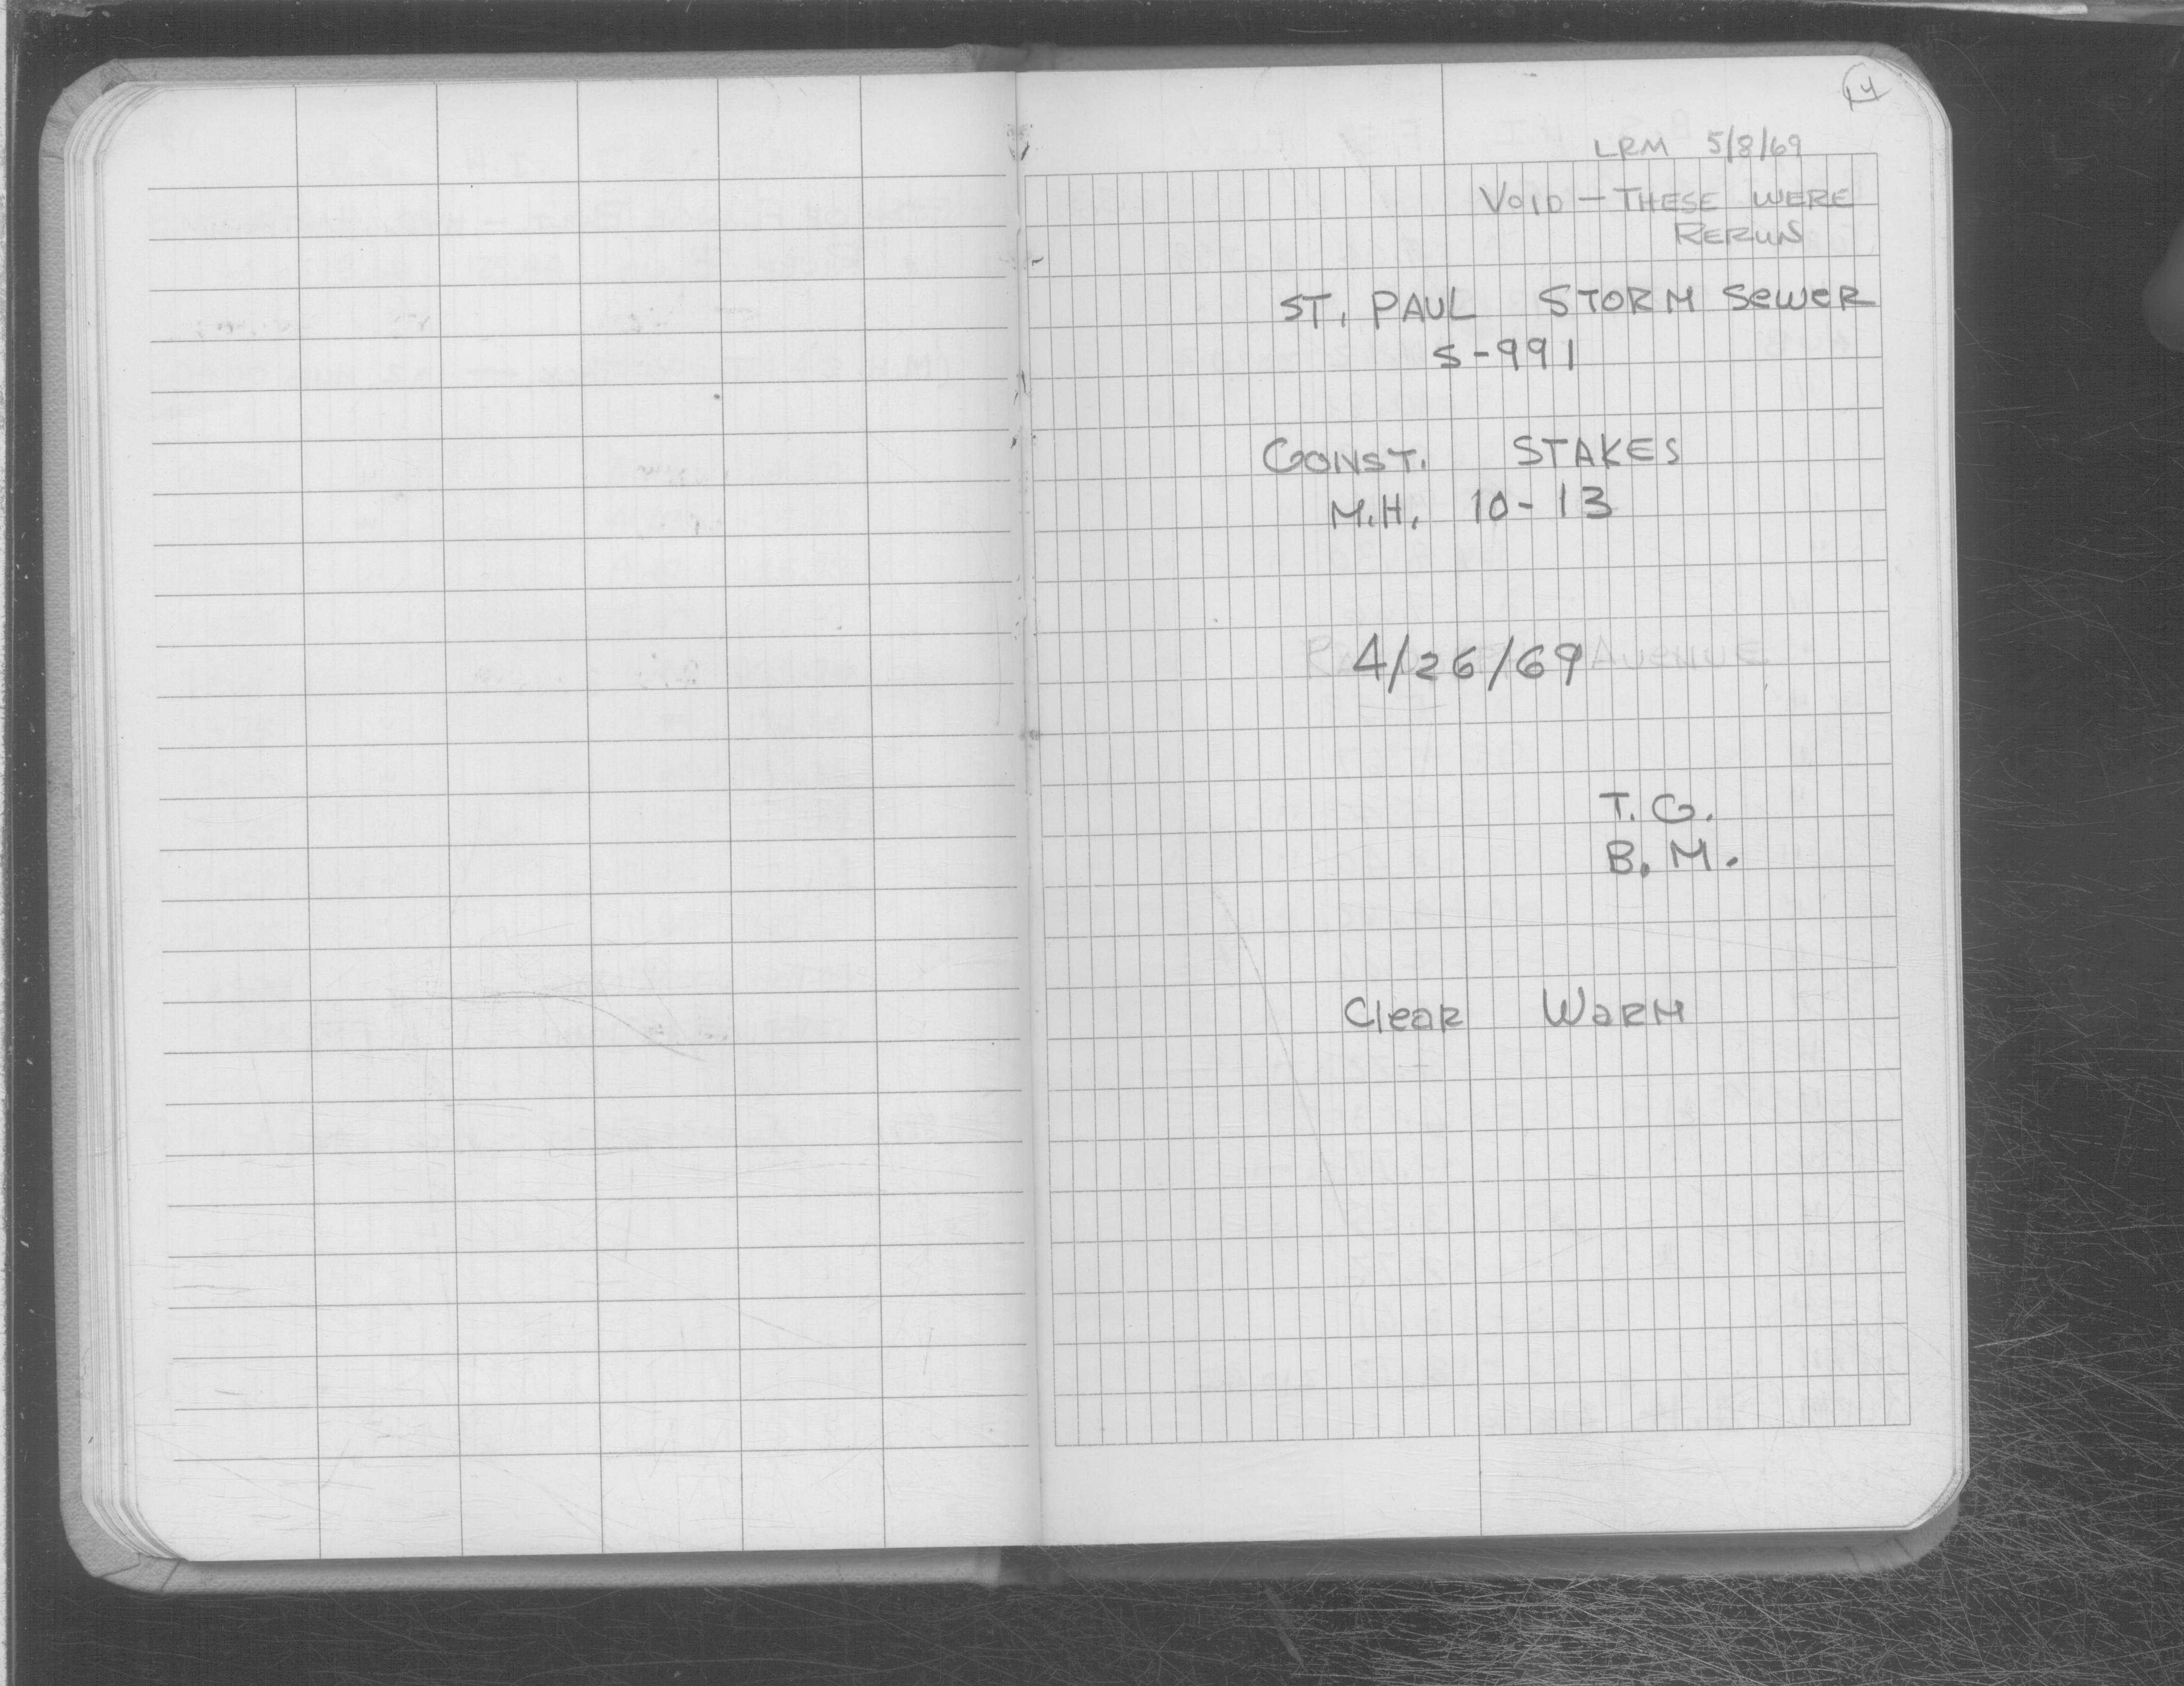 14
LRM 5/8/69
VOID - THESE WERE
RERUN
ST. PAUL STORM SEWER
S-991
CONST. STAKES
M.H. 10-13
4/26/69
AVENUE
T.G.
B.M.
Clear Warm